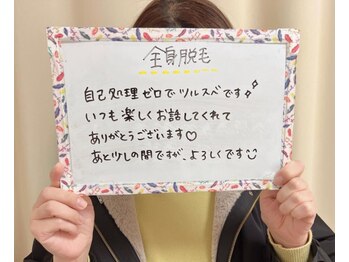 全身脱毛
自己処理ゼロでツルスベです
いつも楽しくお話してくれて
ありがとうございます♡
あと少しの間ですが、よろしくです☺